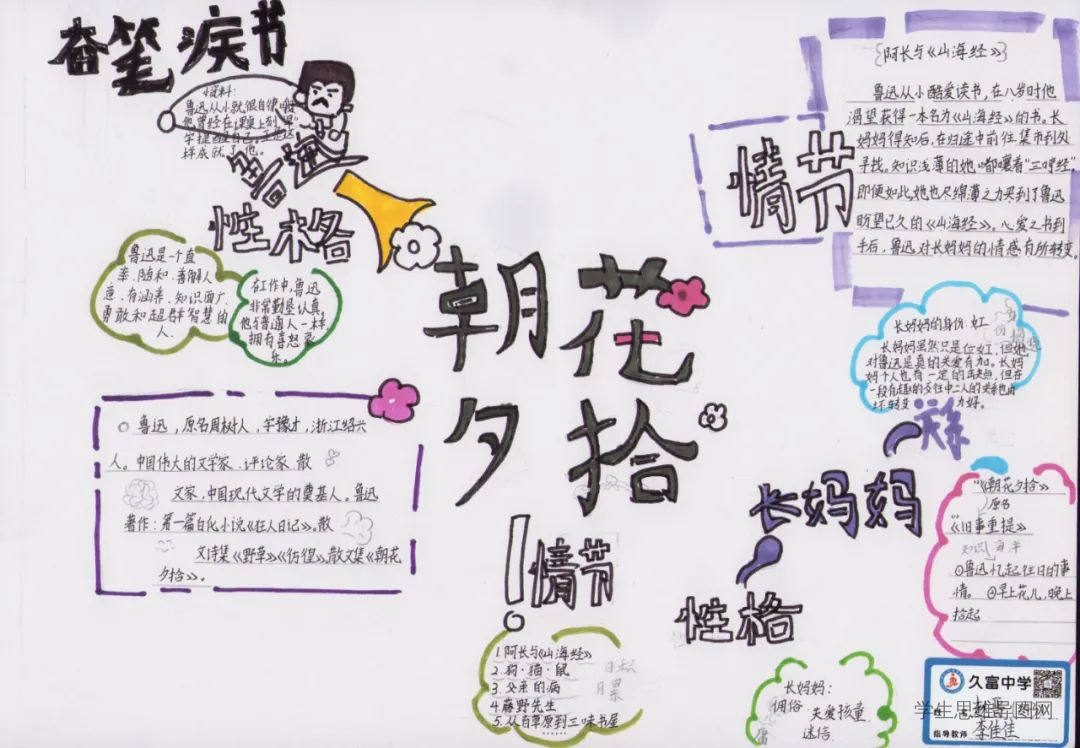 奋笔疾书
小资料:
鲁迅从小就很自律
他曾经在课桌上刻"早"
样成就了他。
鲁迅
性格
鲁迅是一个直
率、随和、善解人
意、有涵养、知识面广、
勇敢和超群智慧的
人.
在工作中,鲁迅
非常勤恳认真。
他与普通人一样,
拥有喜怒哀
乐。
鲁迅,原名周树人,字豫才,浙江绍兴
人。中国伟大的文学家、评论家、散
文家,中国现代文学的奠基人。鲁迅
著作:第一篇白化小说《狂人日记》。散
文诗集《野草》《彷徨》,散文集《朝花
夕拾》。
朝花
夕拾
情节
1.阿长与《山海经》
2.狗·猫·鼠
3.父亲的病
4.藤野先生
5.从百草原到三味书屋
......
情节
{阿长与《山海经》}
鲁迅从小酷爱读书,在八岁时他
渴望获得一本名为《山海经》的书。长
妈妈得知后,在归途中前往集市到处
寻找。知识浅薄的她嘟囔着"三哼经",
即便如此,她也尽绵薄之力买到了鲁迅
盼望已久的《山海经》。心爱之书到
手后,鲁迅对长妈妈的情感有所转变。
长妈妈的身份:女工
长妈妈虽然只是位女工,但她
对鲁迅是真的关爱有加。长妈
妈个人也有一定的缺点,但在
一段有趣的交往中二人的关系也由
坏转变 为好。
关系
长妈妈
性格
长妈妈:
关爱孩童
迷信
"《朝花夕拾》
原名
《旧事重提》
①鲁迅忆起往日的事
情。 ②早上花儿,晚上
拾起
久富中学
学生思维导图网
指导教师 李佳佳